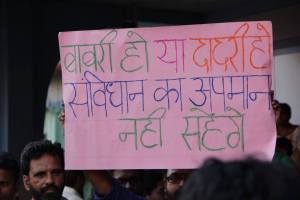 बाबरी हो या दादरी हो
संविधान का अपमान
नही सहेंगे